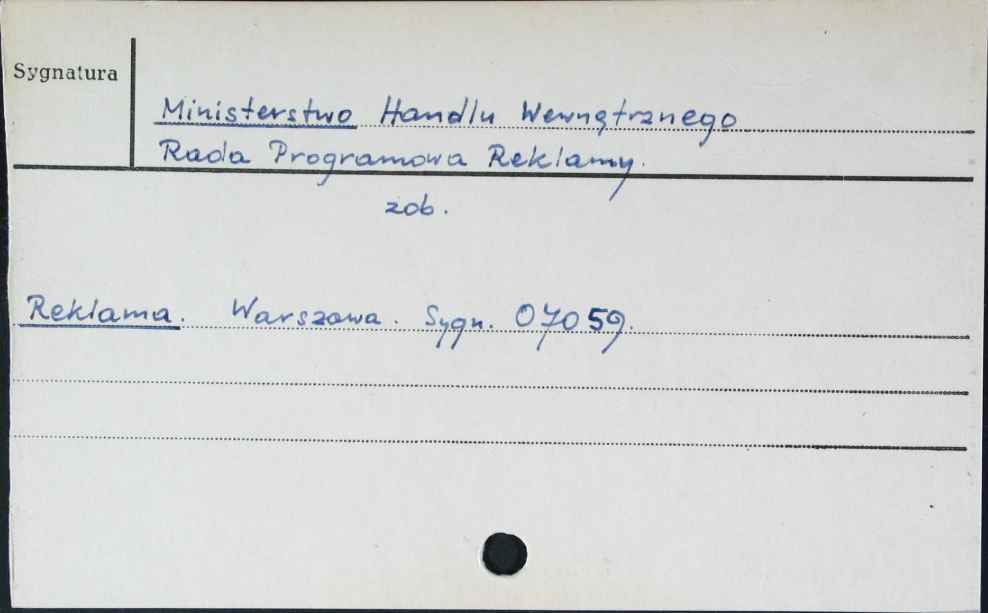 Sygnatura
Ministerstwo Handlu Wewnętrznego
Rada Programowa Reklamy.
zob.
Reklama. Warszawa. Sygn. 07059.